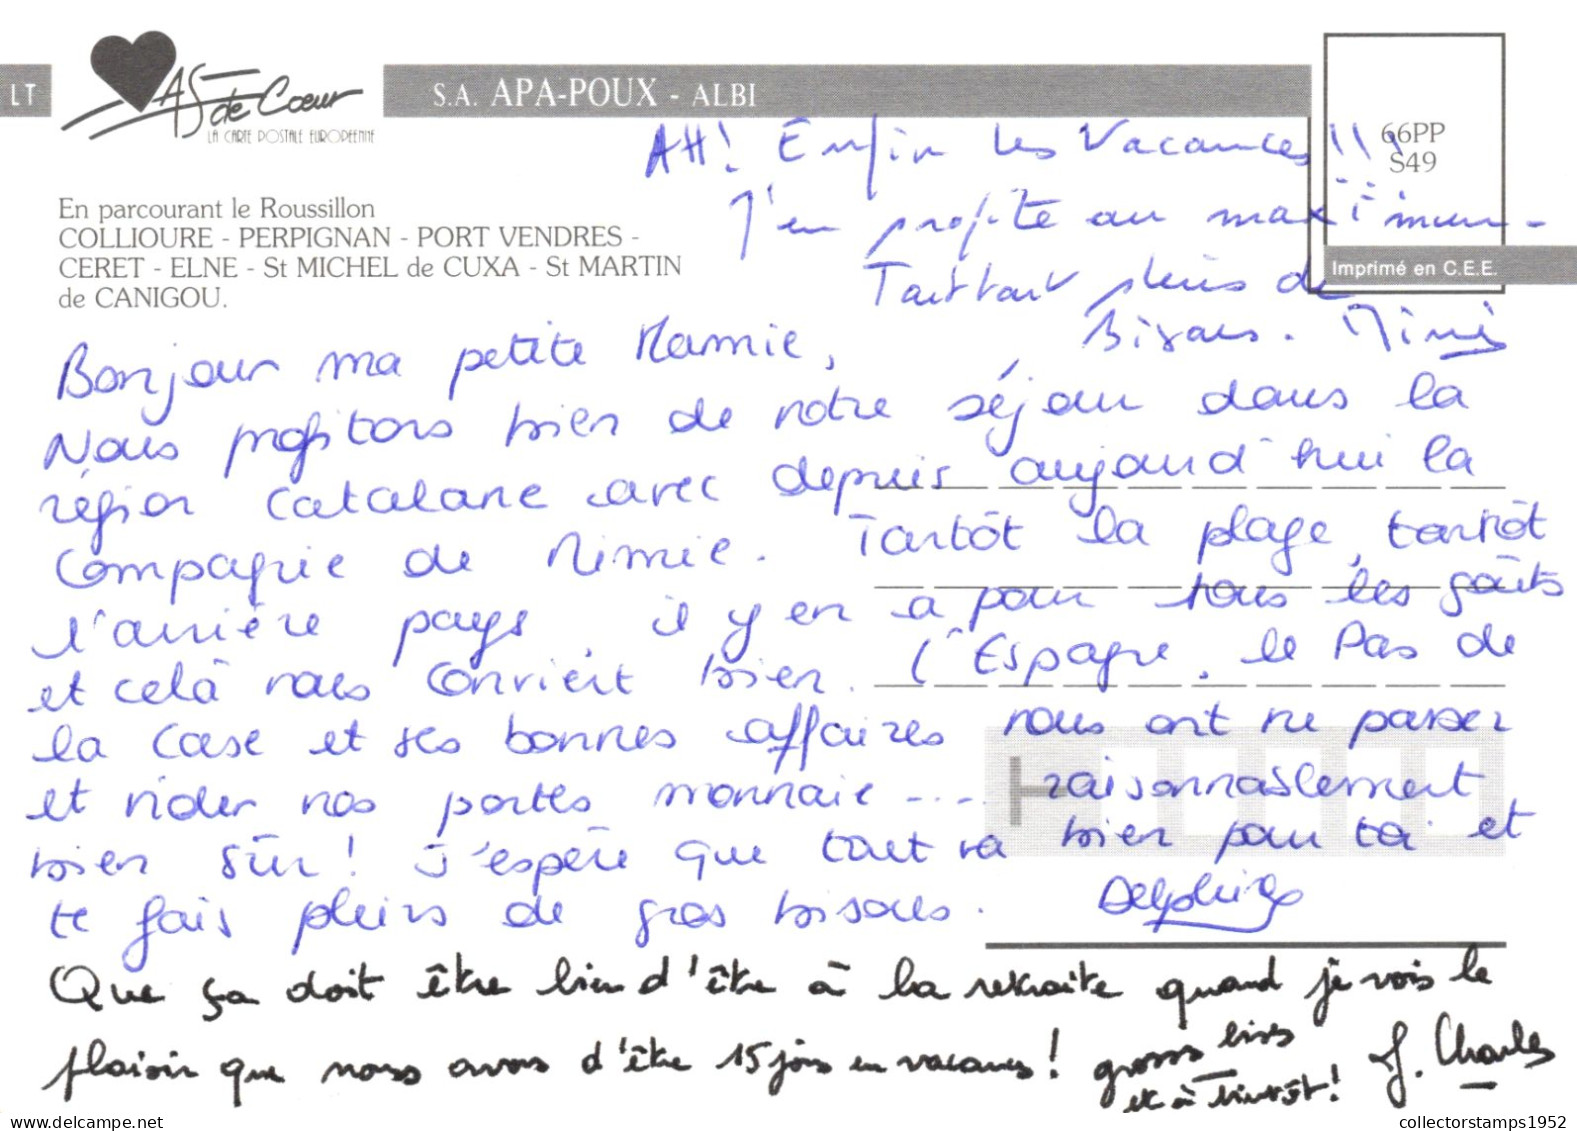 LT
AS de Cœur
LA CARTE POSTALE EUROPÉENNE
S.A. APA-POUX - ALBI
66PP
S49
Imprimé en C.E.E.
En parcourant le Roussillon
COLLIOURE - PERPIGNAN - PORT VENDRES -
CERET - ELNE - St MICHEL de CUXA - St MARTIN
de CANIGOU.
AH! Enfin les Vacances!!!
J'en profite au maximum.
Tartout pleins de
Bisous. Mimie
Bonjour ma petite Mamie,
Nous profitons bien de notre séjour dans la
région catalane avec depuis aujourd'hui la
compagnie de Mimie. Tantôt la plage, tantôt
l'arrière pays, il y en a pour tous les goûts
et celà nous convient bien. L'Espagne, le Pas de
la Case et ses bonnes affaires nous ont vu passer
et vider nos portes monnaie .... raisonnablement
bien sûr! J'espère que tout va bien pour toi et
te fais pleins de gros bisous. Delphine
Que ça doit être bien d'être à la retraite quand je vois le
plaisir que nous avons d'être 15 jours en vacances! grosses bises
et à bientôt! J. Charles
www.delcampe.net
collectorstamps1952